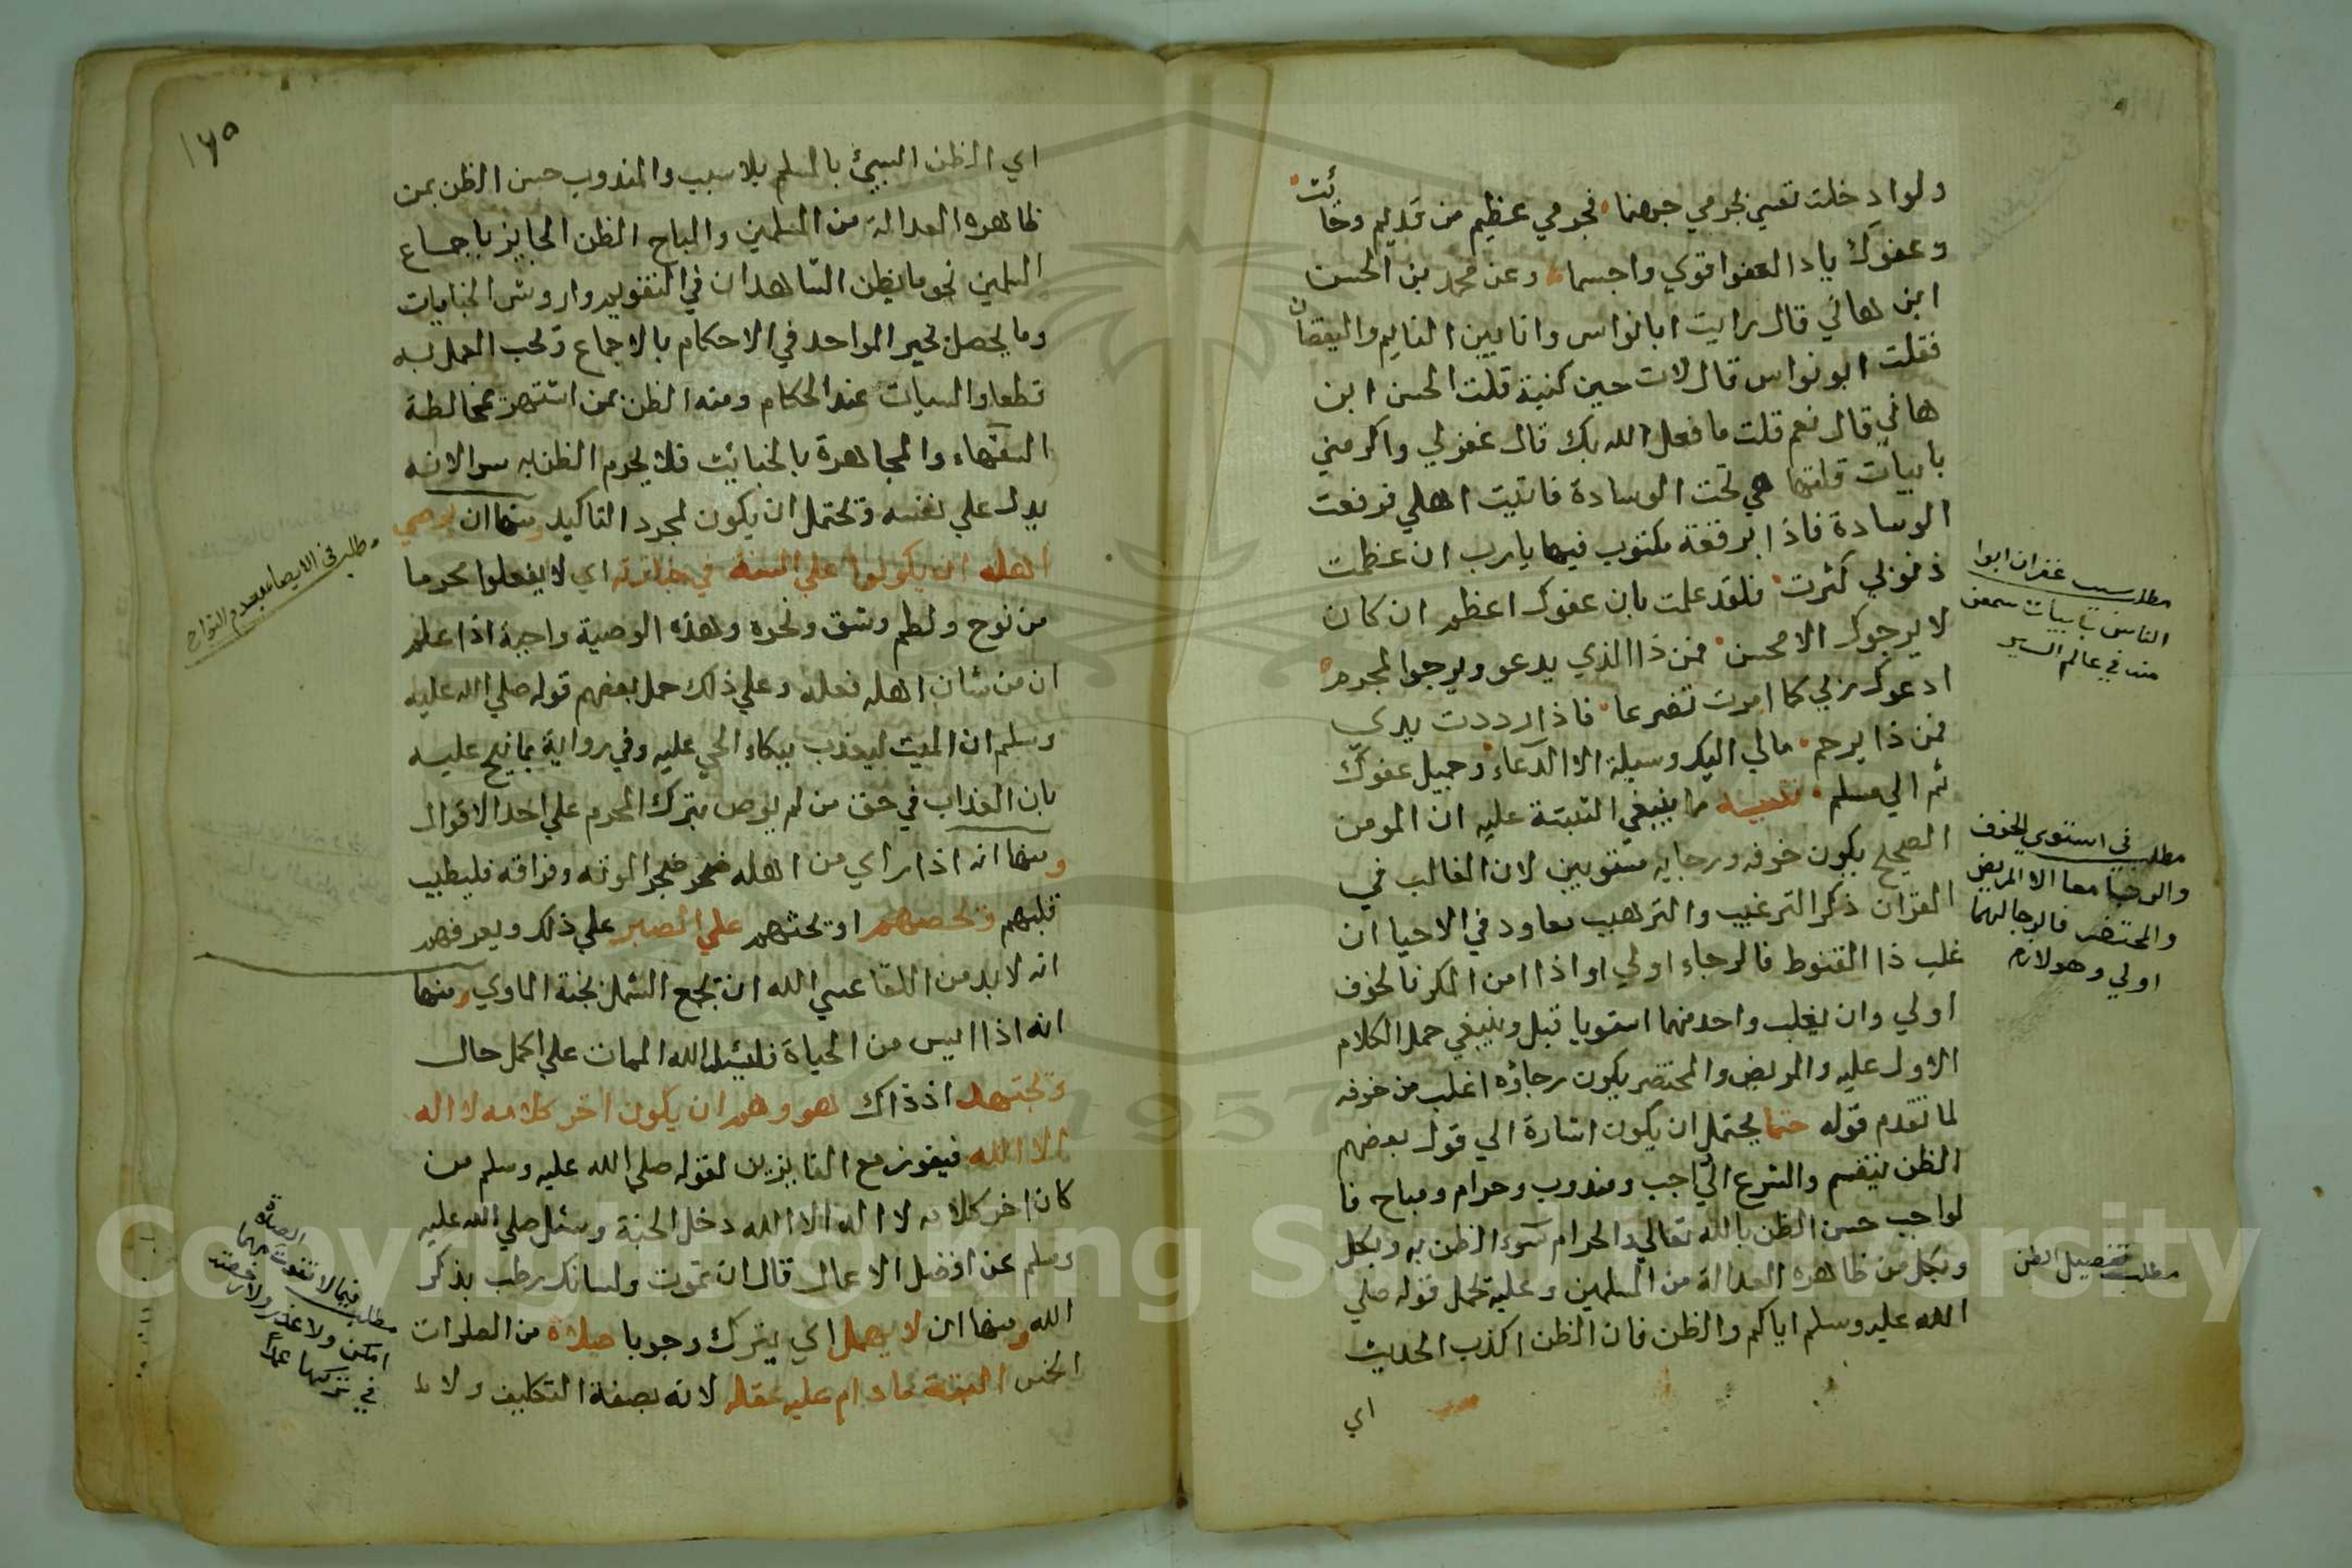 ولو ادخلت نفسي بجرمي جهنما فجرمي عظيم من قديم وحا
وعفوك ياذا العفو اقوي واجسما وعن محمد بن الحسن
ابن هاني قال رايت ابا نواس وانا بين النايم واليقظان
فقلت ابو نواس قال لات حين كنية قلت الحسن ابن
هاني قال نعم قلت ما فعل الله بك قال غفر لي واكرمني
بابيات قلتها هي تحت الوسادة فاتيت اهلي فرفعت
الوسادة فاذا برقعة مكتوب فيها يارب ان عظمت
ذنوبي كثرت فلقد علمت بان عفوك اعظم ان كان
لا يرجوك الا محسن فمن ذا الذي يدعو ويرجو المجرم
ادعوك ربي كما امرت تضرعا فاذا رددت يدي
فمن ذا يرحم مالي اليك وسيلة الا الدعاء وجميل عفوك
ثم اني مسلم تنبيه مما ينبغي التنبيه عليه ان المومن
الصحيح يكون خوفه ورجايه مستويين لان الغالب في
القران ذكر الترغيب والترهيب معا ود في الاحيا ان
غلب ذا القنوط فالرجاء اولي او اذا امن المكر فالخوف
اولي وان يغلب واحد منهما استويا قبل وينبغي حمل الكلام
الاول عليه والمريض والمحتضر يكون رجاؤه اغلب من خوفه
لما تقدم قوله حتما يحتمل ان يكون اشارة الي قول بعضهم
الظن ينقسم والشرع الي واجب ومندوب وحرام ومباح فا
لواجب حسن الظن بالله تعالي والحرام سوء الظن به وبكل
وبكل من ظاهره العدالة من المسلمين وعليه يحمل قوله صلي
الله عليه وسلم اياكم والظن فان الظن اكذب الحديث
اي
مطلب سبب غفران ابوا
الناس بابيات سمعن
منه في عالم السير
مطلب في استوي الخوف
والرجا معا الا المريض
والمحتضر فالرجا لهما
اولي وهو لازم
مطلب تفصيل الظن
١٦٥
اي الظن السيئ بالمسلم بلا سبب والمندوب حسن الظن بمن
ظاهره العدالة من المسلمين والمباح الظن الجايز باجماع
المسلمين نحو ما يظن الشاهدان في التقويم واروش الجنايات
وما يحصل بخبر الواحد في الاحكام بالاجماع ويجب العمل به
قطعا والبينات عند الحكام ومنه الظن بمن اشتهر بمخالطة
السفهاء والمجاهرة بالخبائث فلا يحرم الظن به سوا لانه
يدل علي نفسه ويحتمل ان يكون لمجرد التاكيد ومنها ان يوصي
اهله ان يكونوا علي السنة في جنازته اي لا يفعلوا محرما
من نوح ولطم وشق ونحوه وهذه الوصية واجبة اذا علم
ان من شان اهله فعله وعلي ذلك حمل بعضهم قوله صلي الله عليه
وسلم ان الميت ليعذب ببكاء الحي عليه وفي رواية بما نيح عليه
بان العذاب في حق من لم يوص بترك المحرم علي احد الاقوال
ومنها انه اذا راي من اهله ضجر الموته وفراقه فليطيب
قلبهم ويحضهم او يحثهم علي الصبر علي ذلك ويعرفهم
انه لابد من اللقا عسي الله ان يجمع الشمل بجنة الماوي ومنها
انه اذا ايس من الحياة فليسئل الله الممات علي اكمل حال
ويجتهد اذ ذاك هو وهم ان يكون اخر كلامه لا اله
الا الله فيفوز مع الفايزين لقوله صلي الله عليه وسلم من
كان اخر كلامه لا اله الا الله دخل الجنة وسئل صلي الله عليه
وسلم عن افضل الاعمال قال ان تموت ولسانك رطب بذكر
الله ومنها ان لا يهمل اي يترك وجوبا صلاة من الصلوات
الخمس البتة ما دام عليه عقله لانه بصفة التكليف ولا
مطلب في الايصا بعدم النواح
مطلب فيما لا تفوت الصلاة مهما
امكن ولا عذر ولا رخصة
في تركها عمدا